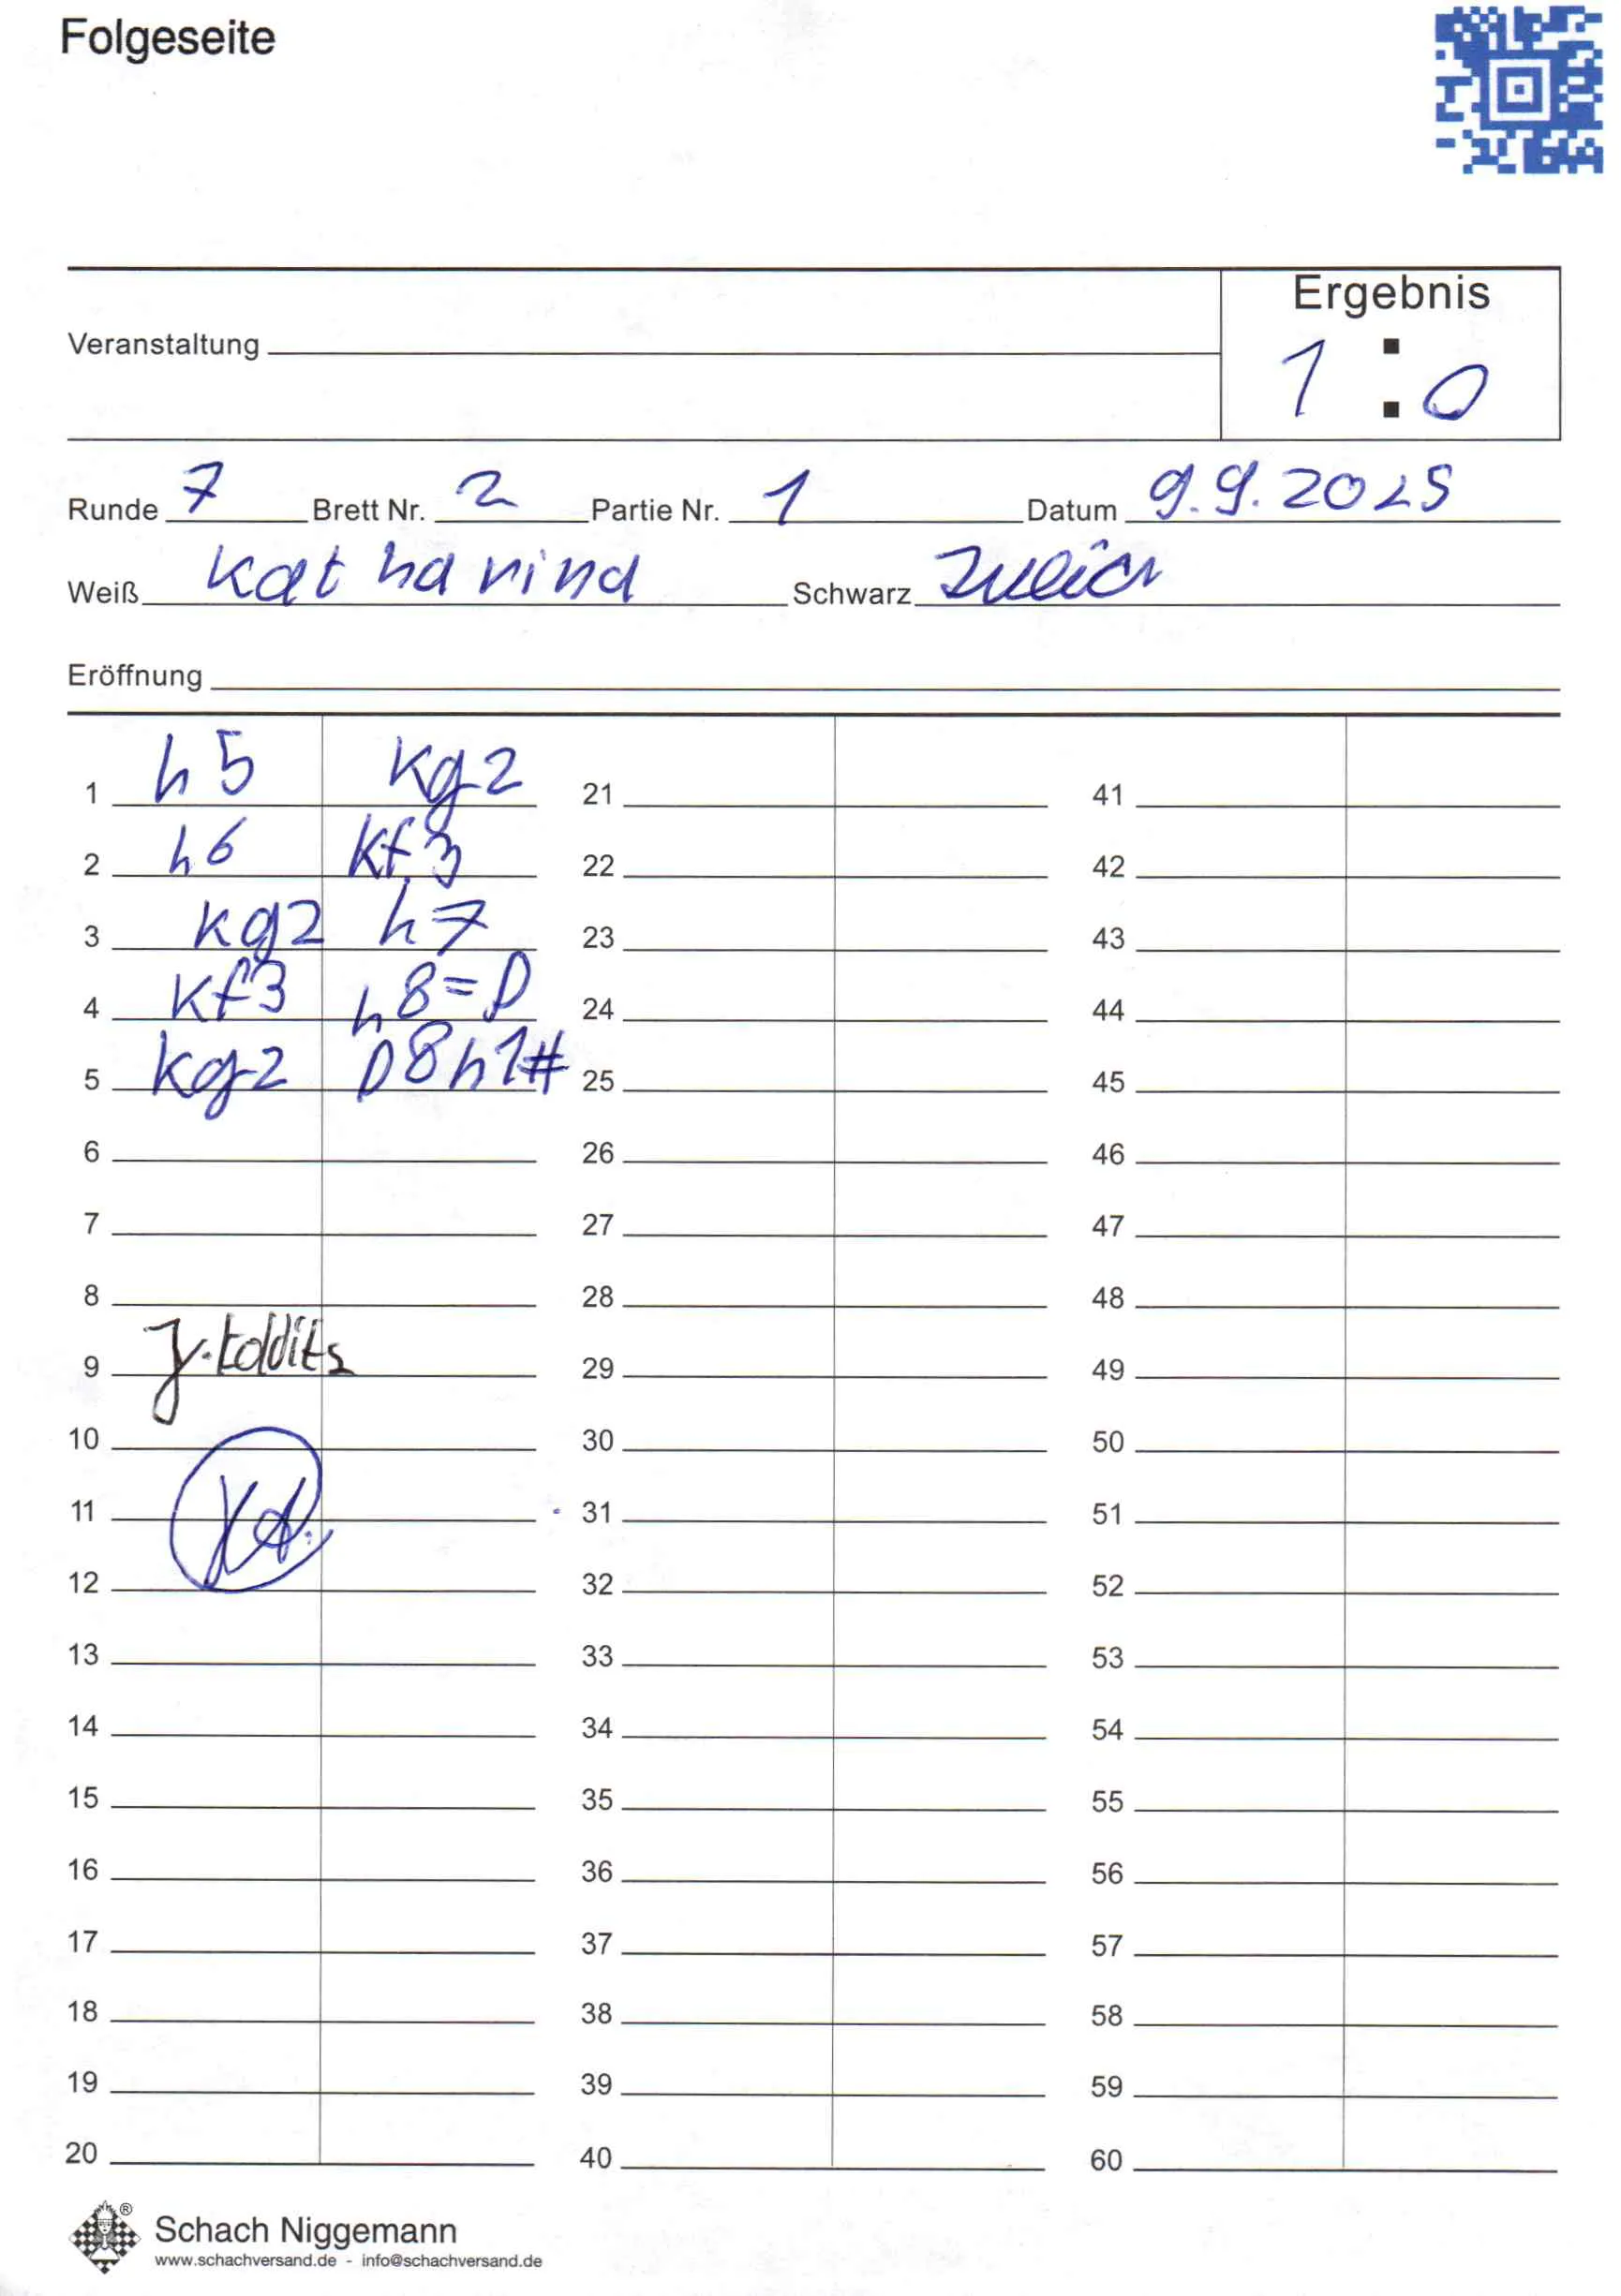 Folgeseite
Ergebnis
Veranstaltung
1 : 0
Runde 7 Brett Nr. 2 Partie Nr. 1 Datum 9.9.2025
Weiß Katharina Schwarz
Eröffnung
1 h5 Kg2 21 41
2 h6 Kf3 22 42
3 Kg2 h7 23 43
4 Kf3 h8=D 24 44
5 Kg2 D8h1# 25 45
6 26 46
7 27 47
8 28 48
9 29 49
10 30 50
11 31 51
12 32 52
13 33 53
14 34 54
15 35 55
16 36 56
17 37 57
18 38 58
19 39 59
20 40 60
® Schach Niggemann
www.schachversand.de - info@schachversand.de